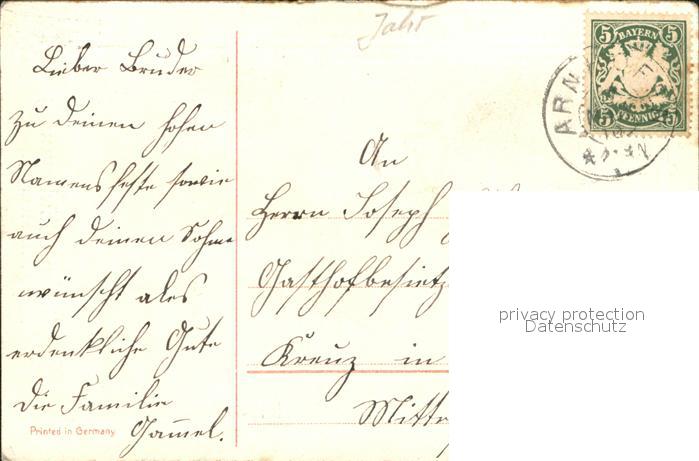 Jahr
5 BAYERN 5
5 PFENNIG 5
ARN
Lieber Bruder
zu deinen hohen
Namensfeste sowie
auch deinen Sohne
wünscht ales
erdenkliche Gute
die Familie
Gam̄el.
Printed in Germany
An
Herrn Joseph
Gasthofbesitz
Kreuz in
Mitt
privacy protection
Datenschutz